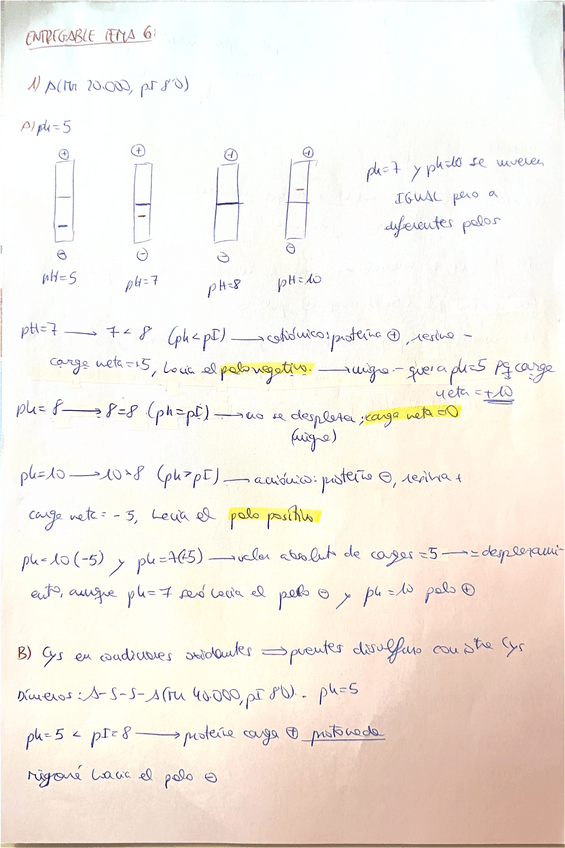 ENTREGABLE TEMA 6:
1) A(Mr 20.000, pI 8'0)
A) pH=5
⊕ ⊕ ⊕ ⊕
⊖ ⊖ ⊖ ⊖
pH=5 pH=7 pH=8 pH=10
pH=7 y pH=10 se mueven
IGUAL pero a
diferentes polos
pH=7 ⟶ 7 < 8 (pH<pI) ⟶ catiónico: proteína ⊕, resina -
carga neta=+5, hacia el polo negativo. ⟶ migra - que a pH=5 pq carga
neta = +10
pH= 8 ⟶ 8=8 (pH=pI) ⟶ no se desplaza; carga neta=0
(migra)
pH=10 ⟶ 10>8 (pH>pI) ⟶ aniónico: proteína ⊖, resina +
carga neta= -5, hacia el polo positivo
pH=10(-5) y pH=7(+5) ⟶ valor absoluto de cargas=5 ⟶ = desplazami-
ento, aunque pH=7 será hacia el polo ⊖ y pH=10 polo ⊕
B) Cys en condiciones oxidantes ⟹ puentes disulfuro con otra Cys
Dímeros: A-S-S-A(Mr 40.000, pI 8'0). pH=5
pH=5 < pI=8 ⟶ proteína carga ⊕ protonada
migrará hacia el polo ⊖